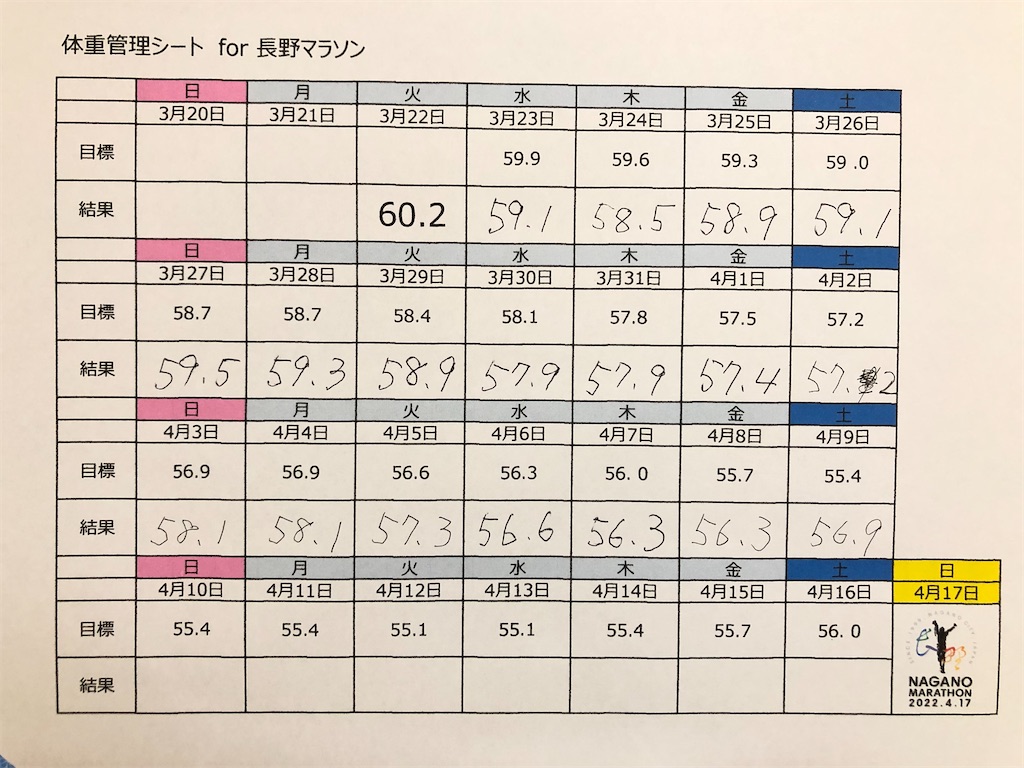 体重管理シート for 長野マラソン
日 月 火 水 木 金 土
3月20日 3月21日 3月22日 3月23日 3月24日 3月25日 3月26日
目標 59.9 59.6 59.3 59 .0
結果 60.2 59.1 58.5 58.9 59.1
日 月 火 水 木 金 土
3月27日 3月28日 3月29日 3月30日 3月31日 4月1日 4月2日
目標 58.7 58.7 58.4 58.1 57.8 57.5 57.2
結果 59.5 59.3 58.9 57.9 57.9 57.4 57.2
日 月 火 水 木 金 土
4月3日 4月4日 4月5日 4月6日 4月7日 4月8日 4月9日
目標 56.9 56.9 56.6 56.3 56. 0 55.7 55.4
結果 58.1 58.1 57.3 56.6 56.3 56.3 56.9
日 月 火 水 木 金 土 日
4月10日 4月11日 4月12日 4月13日 4月14日 4月15日 4月16日 4月17日
目標 55.4 55.4 55.1 55.1 55.4 55.7 56. 0
結果
NAGANO
MARATHON
2022.4.17